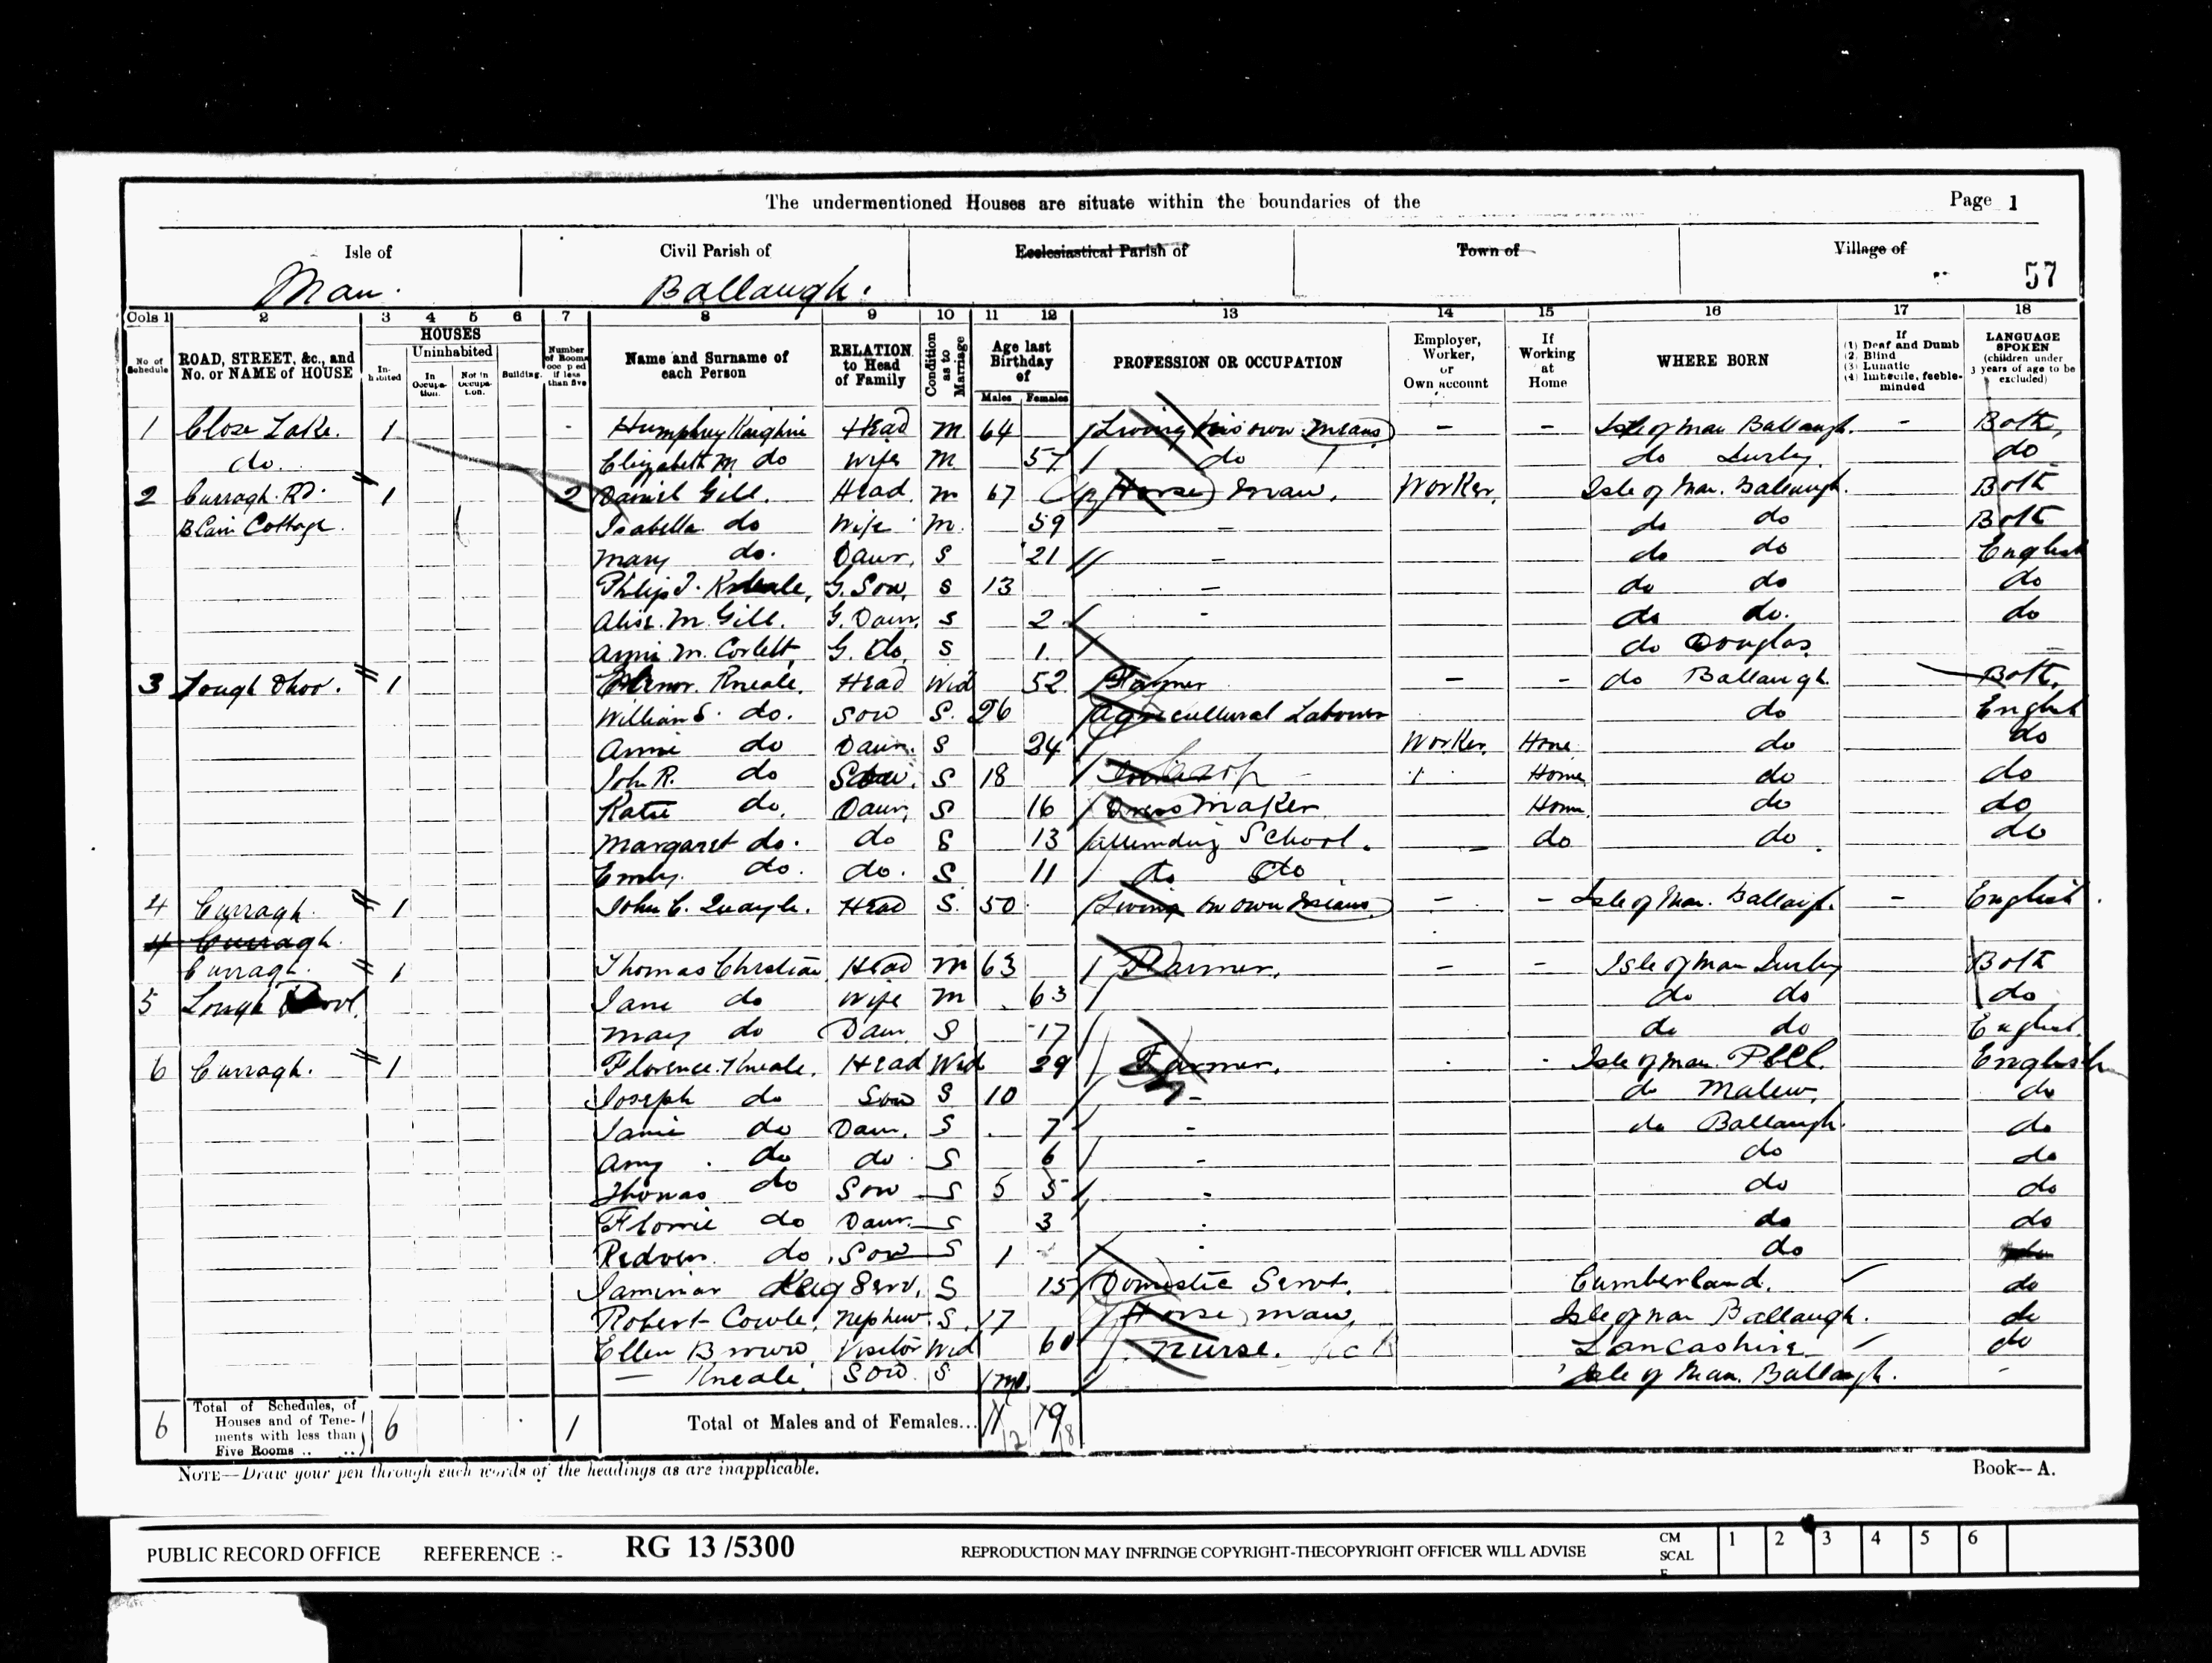 The undermentioned Houses are situate within the boundaries of the
Page 1
Isle of Man.
Civil Parish of Ballaugh.
Ecclesiastical Parish of
Town of
Village of
57
Cols 1 2 3 4 5 6 7 8 9 10 11 12 13 14 15 16 17 18
No of Schedule
ROAD, STREET, &c., and No. or NAME of HOUSE
HOUSES
Inhabited
Uninhabited
In Occupation.
Not in Occupation.
Building.
Number of Rooms occupied if less than five
Name and Surname of each Person
RELATION to Head of Family
Condition as to Marriage
Age last Birthday of
Males Females
PROFESSION OR OCCUPATION
Employer, Worker, or Own account
If Working at Home
WHERE BORN
If (1) Deaf and Dumb (2) Blind (3) Lunatic (4) Imbecile, feeble-minded
LANGUAGE SPOKEN (children under 3 years of age to be excluded)
1 Close Lake. 1 - Humphrey Kaighin Head M. 64 Living his own means - - Isle of Man Ballaugh. - Both,
do. Elizabeth M do Wife M 57 do do Jurby. do
2 Curragh Rd. 1 2 Daniel Gill. Head. M 67 Horse man. Worker. Isle of Man. Ballaugh. Both
Blair Cottage. Isabella do Wife M. 59 - do do Both
Mary do. Daur. S 21 - do do English
Philip J. Kneale, G. Son, S 13 - do do do
Alice. M. Gill. G. Daur. S 2 - do do. do
Annie. M. Corlett, G. Do. S 1. do Douglas. -
3 Lough Dhoo. 1 Elenor. Kneale. Head Wid 52 Farmer - - do Ballaugh Both.
William S. do. Son S. 26 Agricultural Labourer do English
Annie do Daur. S 24 Worker. Home do do
John R. do Son. S 18 Home do do
Katie do. Daur, S 16 Dress Maker Home. do do
Margaret do. do S 13 attending School. - do do do
Emily. do. do. S 11 do do
4 Curragh. 1 John C. Quayle. Head S. 50 Living on own means - - Isle of Man. Ballaugh. - English.
4 Curragh.
Curragh. 1 Thomas Christian Head M 63 Farmer. - - Isle of Man Jurby Both
5 Lough Jane do Wife M 63 do do do
May do Daur S 17 do do English.
6 Curragh. 1 Florence. Kneale. Head Wid 29 Farmer. - Isle of Man. Peel. English
Joseph do Son S 10 - do Malew, do
Janie do Daur. S 7 - do Ballaugh. do
Amy do do S 6 - do do
Thomas do Son S 5 5 - do do
Florrie do Daur. S 3 do do
Redvers do. Son S 1 do
Jaminar Keig Serv. S 15 Domestic Servt. Cumberland. do
Robert Cowle. Nephew. S. 17 Horse man, Isle of Man Ballaugh. do
Ellen Brown Visitor Wid 60 Nurse. Lancashire do
— Kneale. Son S 1mo. Isle of Man. Ballaugh. -
6 Total of Schedules, of Houses and of Tenements with less than Five Rooms .. ..) 6 1 Total of Males and of Females... 11 12 19 18
NOTE—Draw your pen through such words of the headings as are inapplicable.
Book—A.
PUBLIC RECORD OFFICE REFERENCE :- RG 13 /5300 REPRODUCTION MAY INFRINGE COPYRIGHT-THECOPYRIGHT OFFICER WILL ADVISE CM SCALE 1 2 3 4 5 6